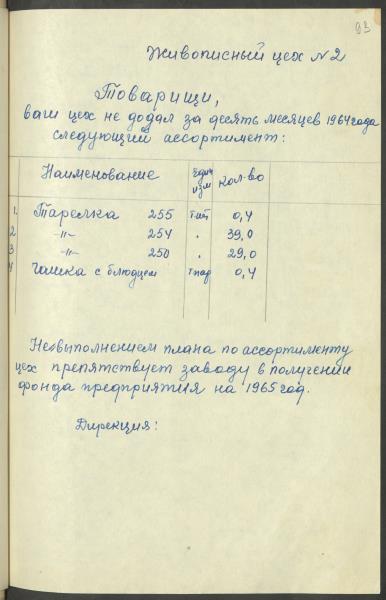 93
Живописный цех № 2
Товарищи,
ваш цех не додал за десять месяцев 1964 года
следующий ассортимент:
Наименование Един изм Кол-во
1. Тарелка 255 т.шт 0,4
2 -"- 254 " 39,0
3 -"- 250 " 29,0
4 Чашка с блюдцем тпар 0,4
Невыполнением плана по ассортименту
цех препятствует заводу в получении
фонда предприятия на 1965 год.
Дирекция: